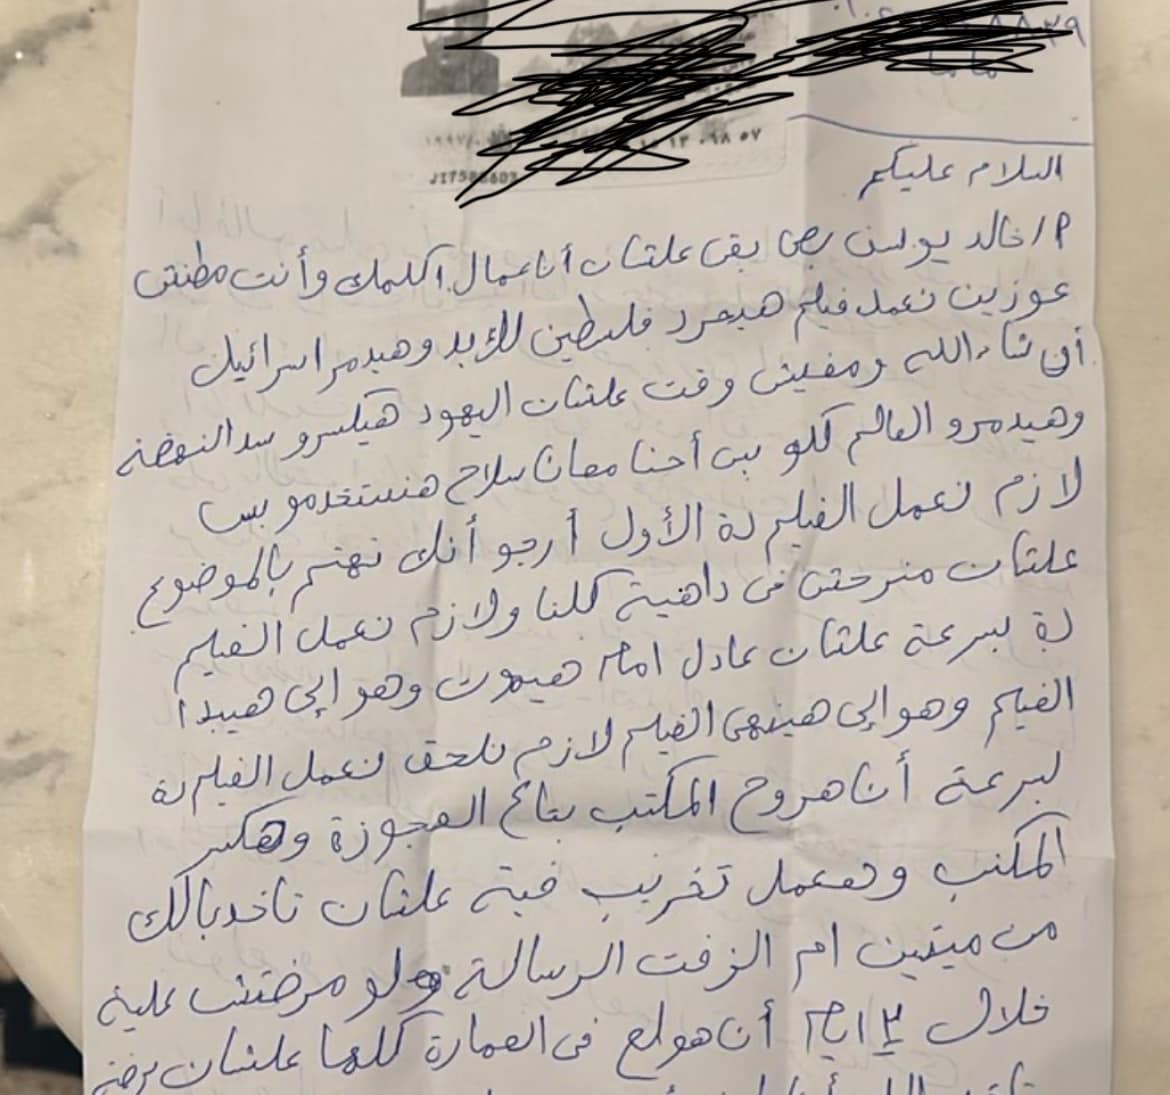 السلام عليكم
أ/ خالد يوسف بص بقى علشان أنا عمال اكلمك وأنت مطنش
عوزين نعمل فيلم هيحرر فلسطين للأبد وهيدمر اسرائيل
أن شاء الله ومفيش وقت علشان اليهود هيكسرو سد النهضة
وهيدمرو العالم كلو بس أحنا معانا سلاح هنستخدمو بس
لازم نعمل الفيلم دة الأول أرجو أنك تهتم بالموضوع
علشان منرحش فى داهية كلنا ولازم نعمل الفيلم
دة بسرعة علشان عادل امام هيموت وهو إلى هيبدا
الفيلم وهو إلى هينهى الفيلم لازم نلحق نعمل الفيلم دة
بسرعة أنا هروح المكتب بتاع العجوزة وهكسر
المكتب وهعمل تخريب فية علشان تاخد بالك
من ميتين ام الزفت الرسالة ولو مرضتش علية
خلال ٣ ايام أنا هولع فى العمارة كلها علشان